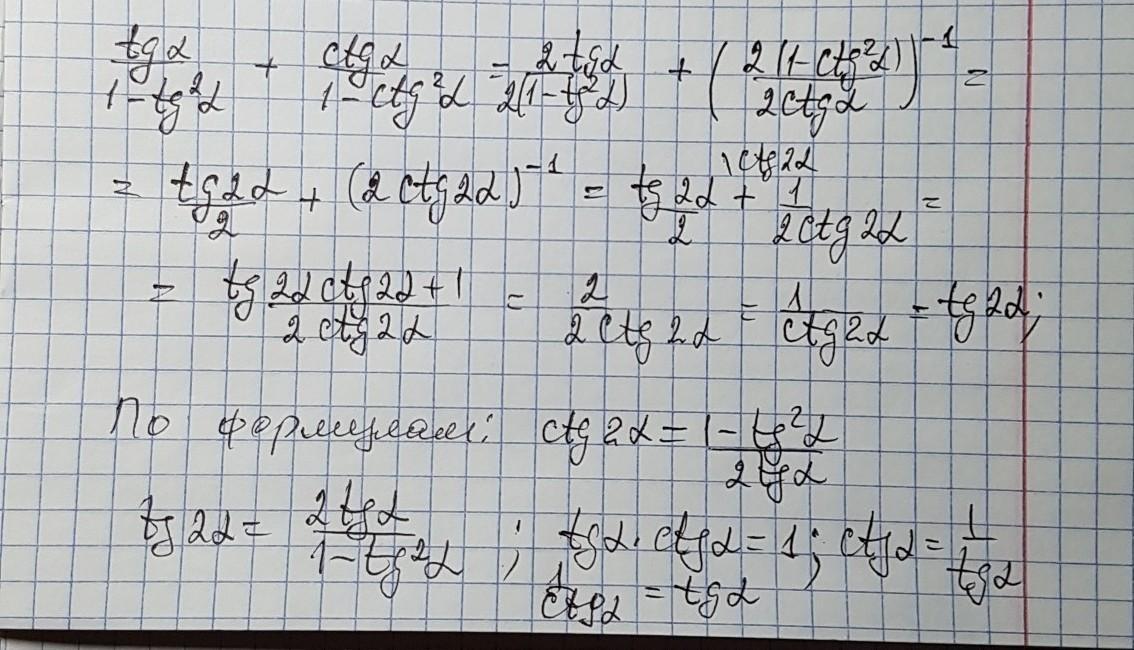 tgα/(1-tg²α) + ctgα/(1-ctg²α) = 2tgα/(2(1-tg²α)) + (2(1-ctg²α)/(2ctgα))⁻¹ =
= tg2α/2 + (2ctg2α)⁻¹ = tg2α/2 \ctg2α + 1/(2ctg2α) =
= (tg2αctg2α+1)/(2ctg2α) = 2/(2ctg2α) = 1/(ctg2α) = tg2α;
По формулам: ctg2α = (1-tg²α)/(2tgα)
tg2α = 2tgα/(1-tg²α) ; tgα·ctgα=1; ctgα = 1/tgα
1/ctgα = tgα